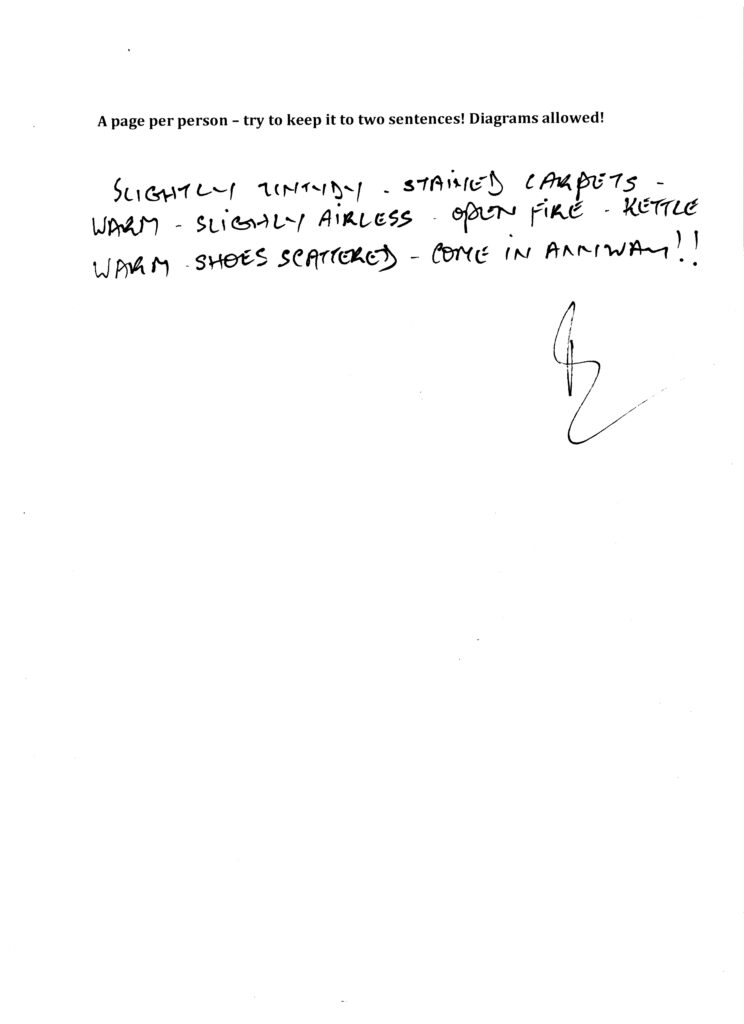 A page per person – try to keep it to two sentences! Diagrams allowed!
SLIGHTLY UNTIDY - STAINED CARPETS -
WARM - SLIGHLY AIRLESS - OPEN FIRE - KETTLE
WARM - SHOES SCATTERED - COME IN ANNIWAY!!